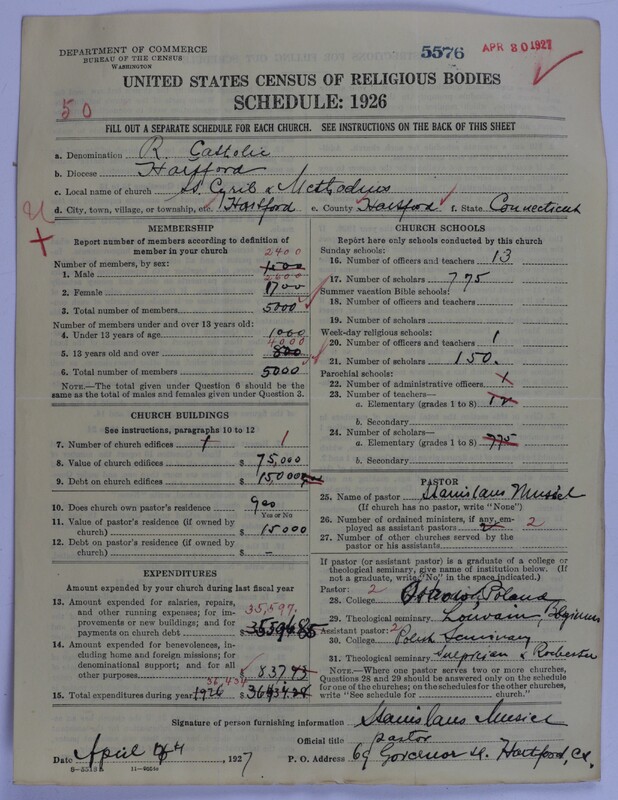 DEPARTMENT OF COMMERCE
BUREAU OF THE CENSUS
WASHINGTON
5576
APR 30 1927
UNITED STATES CENSUS OF RELIGIOUS BODIES
SCHEDULE: 1926
50
FILL OUT A SEPARATE SCHEDULE FOR EACH CHURCH. SEE INSTRUCTIONS ON THE BACK OF THIS SHEET
a. Denomination R. Catholic
b. Diocese Hartford
c. Local name of church SS. Cyril & Methodius
d. City, town, village, or township, etc. Hartford e. County Hartford f. State Connecticut
MEMBERSHIP
Report number of members according to definition of
member in your church
Number of members, by sex:
2400
1. Male
2600
2. Female 1700
3. Total number of members 5000
Number of members under and over 13 years old:
4. Under 13 years of age 1000
4000
5. 13 years old and over 800
6. Total number of members 5000
NOTE.—The total given under Question 6 should be the
same as the total of males and females given under Question 3.
CHURCH BUILDINGS
See instructions, paragraphs 10 to 12
7. Number of church edifices 1 1
8. Value of church edifices $ 75,000
9. Debt on church edifices $ 15,000
10. Does church own pastor's residence? yes
Yes or No
11. Value of pastor's residence (if owned by
church) $ 15000
12. Debt on pastor's residence (if owned by
church) $ –
EXPENDITURES
Amount expended by your church during last fiscal year
13. Amount expended for salaries, repairs,
and other running expenses; for im-
provements or new buildings; and for
payments on church debt $
35,597.
14. Amount expended for benevolences, in-
cluding home and foreign missions; for
denominational support; and for all
other purposes $ 837.43
36,434
15. Total expenditures during year 1926 $
CHURCH SCHOOLS
Report here only schools conducted by this church
Sunday schools:
16. Number of officers and teachers 13
17. Number of scholars 775
Summer vacation Bible schools:
18. Number of officers and teachers
19. Number of scholars
Week-day religious schools:
20. Number of officers and teachers 1
21. Number of scholars 150.
Parochial schools:
22. Number of administrative officers 1
23. Number of teachers—
a. Elementary (grades 1 to 8) 12
b. Secondary
24. Number of scholars—
a. Elementary (grades 1 to 8) 775
b. Secondary
PASTOR
25. Name of pastor Stanislaus Musiel
(If church has no pastor, write "None")
26. Number of ordained ministers, if any, em-
ployed as assistant pastors 2 2
27. Number of other churches served by the
pastor or his assistants
If pastor (or assistant pastor) is a graduate of a college or
theological seminary, give name of institution below. (If
not a graduate, write "No" in the space indicated.)
Pastor: 2
28. College Poland
29. Theological seminary Louvain, Belgium
Assistant pastor: 2
30. College Polish Seminary
31. Theological seminary & Rochester
NOTE.—Where one pastor serves two or more churches,
Questions 28 and 29 should be answered only on the schedule
for one of the churches; on the schedules for the other churches,
write "See schedule for church."
Signature of person furnishing information Stanislaus Musiel
Official title pastor
Date April 1927 P. O. Address 69 Governor St. Hartford, Ct.
8–5513 a 11–9004a